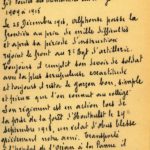 1909 à 1916
Le 25 Décembre 1916, Alphonse passe la
frontière au prix de mille difficultés
et après sa période d'instruction
rejoint le front au Rgt d'artillerie.
Toujours il remplit son devoir de soldat
avec la plus scrupuleuse exactitude
et toujours il reste le garçon bon, simple
et pieux que l'on a connu au collège.
Son régiment est en action lors de
la prise de la forêt d'Houthulst le 29
Septembre 1918, un éclat d'obus blesse
grièvement notre ami. Transporté
à l'hôpital de à La Panne il